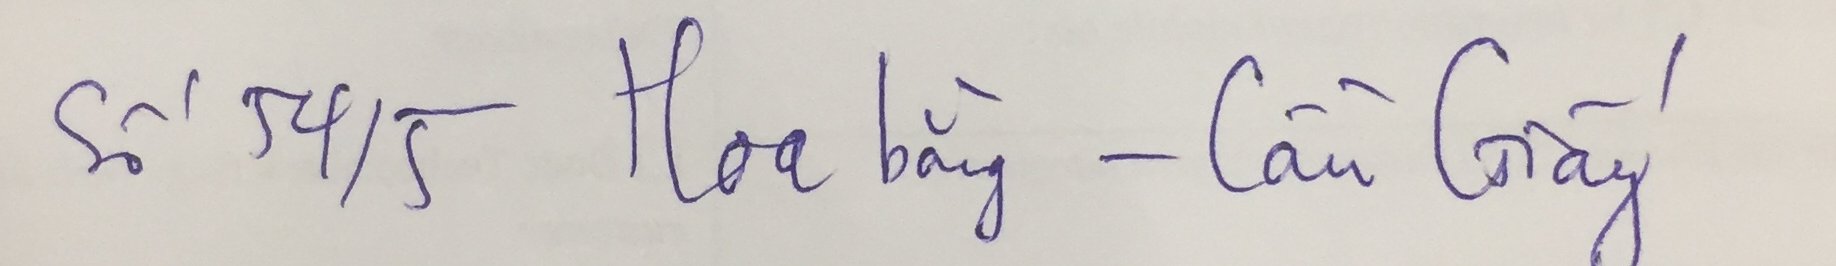 Số 54/5 Hoa bằng - Cầu Giấy